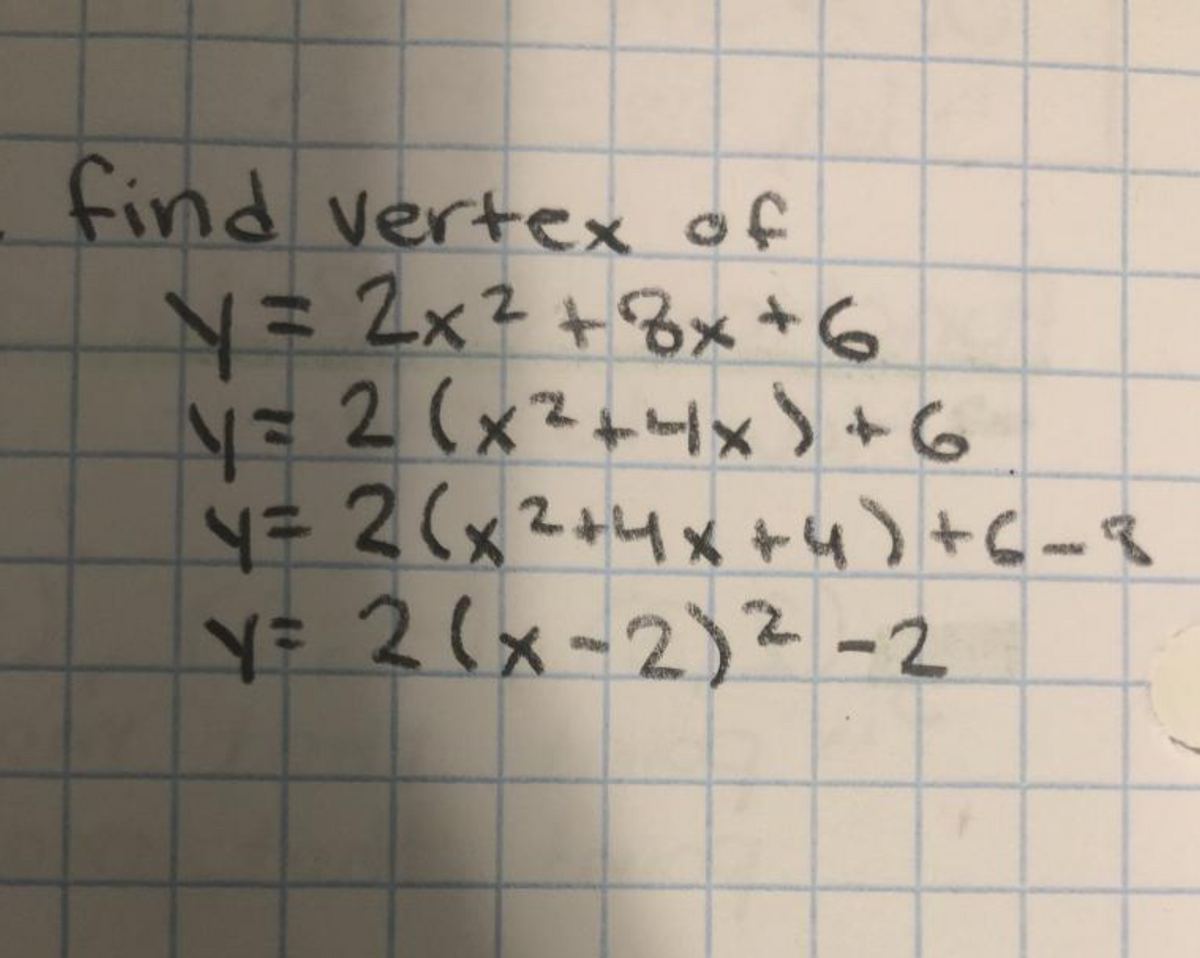 find vertex of
y = 2x² + 8x + 6
y = 2(x² + 4x) + 6
y = 2(x² + 4x + 4) + 6 - 8
y = 2(x - 2)² - 2